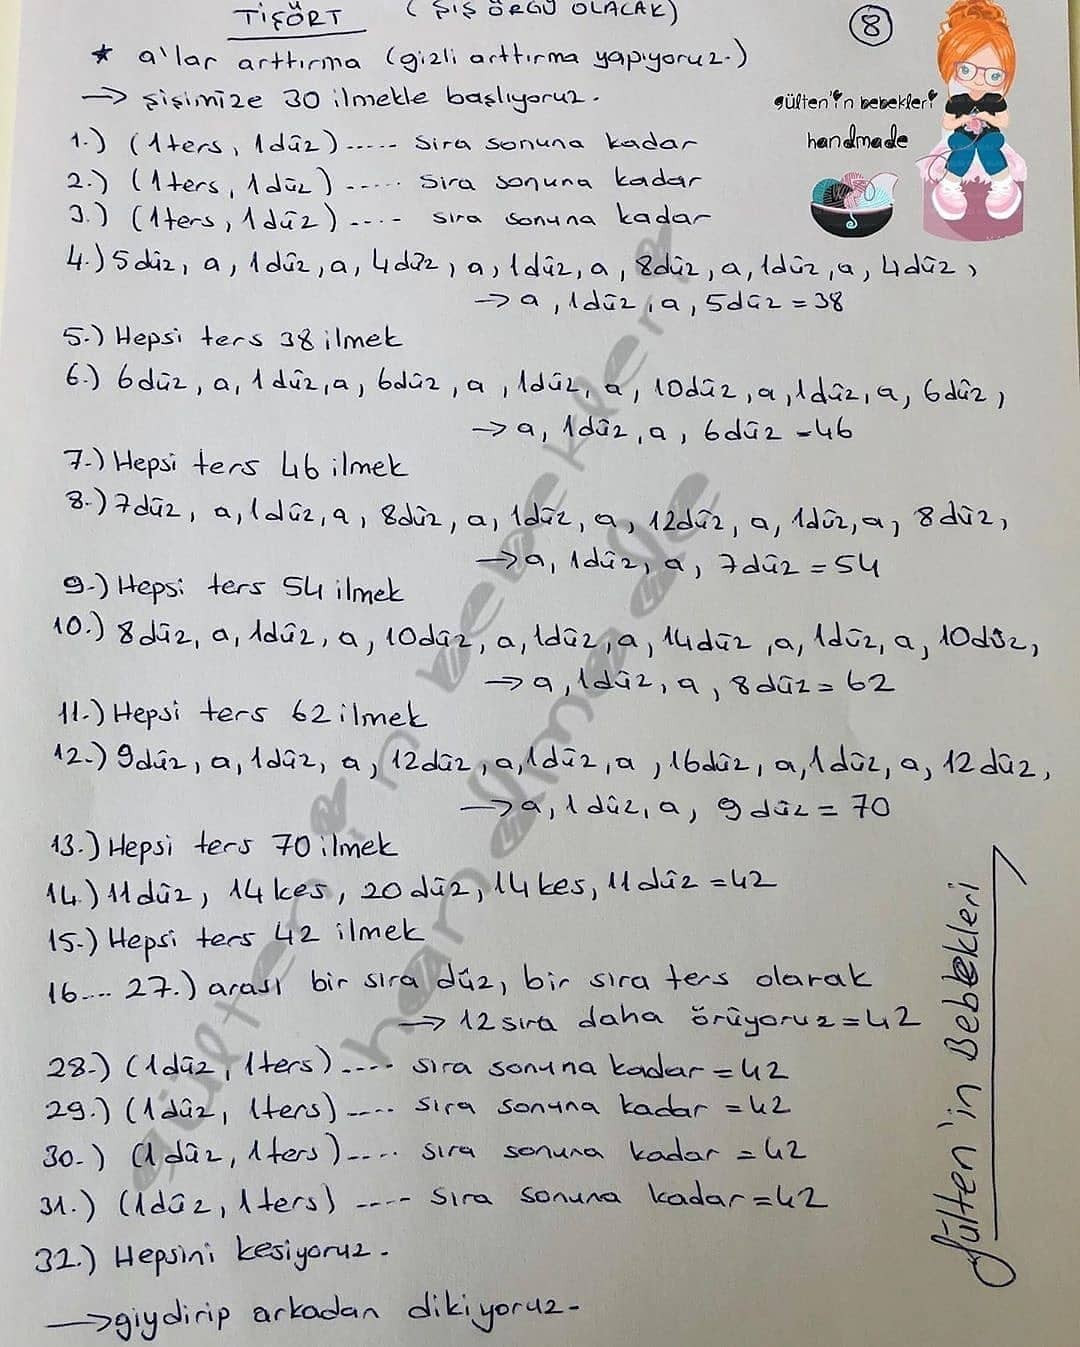 TİŞÖRT ( ŞİŞ ÖRGÜ OLACAK)
8
* a'lar arttırma (gizli arttırma yapıyoruz.)
→ şişimize 30 ilmekle başlıyoruz.
gülten'in bebekleri
handmade
1.) (1ters, 1düz)----- sıra sonuna kadar
2.) (1ters, 1düz) ----- sıra sonuna kadar
3.) (1ters, 1düz)---- sıra sonuna kadar
4.) 5düz, a, 1düz, a, 4düz, a, 1düz, a, 8düz, a, 1düz, a, 4düz,
→ a, 1düz, a, 5düz = 38
5.) Hepsi ters 38 ilmek
6.) 6düz, a, 1düz, a, 6düz, a, 1düz, a, 10düz, a, 1düz, a, 6düz,
→ a, 1düz, a, 6düz = 46
7.) Hepsi ters 46 ilmek
8.) 7düz, a, 1düz, a, 8düz, a, 1düz, a, 12düz, a, 1düz, a, 8düz,
→ a, 1düz, a, 7düz = 54
9.) Hepsi ters 54 ilmek
10.) 8düz, a, 1düz, a, 10düz, a, 1düz, a, 14düz, a, 1düz, a, 10düz,
→ a, 1düz, a, 8düz = 62
11.) Hepsi ters 62 ilmek
12.) 9düz, a, 1düz, a, 12düz, a, 1düz, a, 16düz, a, 1düz, a, 12düz,
→ a, 1düz, a, 9düz = 70
13.) Hepsi ters 70 ilmek
14.) 11düz, 14kes, 20düz, 14kes, 11düz = 42
15.) Hepsi ters 42 ilmek
16.... 27.) arası bir sıra düz, bir sıra ters olarak
→ 12 sıra daha örüyoruz = 42
28.) (1düz, 1ters).... sıra sonuna kadar = 42
29.) (1düz, 1ters) ---- sıra sonuna kadar = 42
30.) (1düz, 1ters).... sıra sonuna kadar = 42
31.) (1düz, 1ters) ---- sıra sonuna kadar = 42
32.) Hepsini kesiyoruz.
→ giydirip arkadan dikiyoruz.
Gülten'in Bebekleri
gülten'in bebekleri
handmade